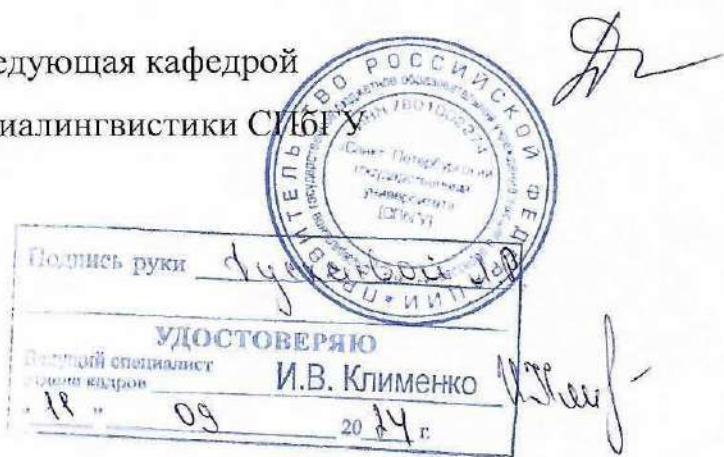 едующая кафедрой
иалингвистики СПбГУ
ПРАВИТЕЛЬСТВО РОССИЙСКОЙ ФЕДЕРАЦИИ
ИНН 7801002274
Санкт-Петербургский
государственный
университет
(СПбГУ)
Подпись руки
УДОСТОВЕРЯЮ
Ведущий специалист
отдела кадров
И.В. Клименко
09 20 24 г.